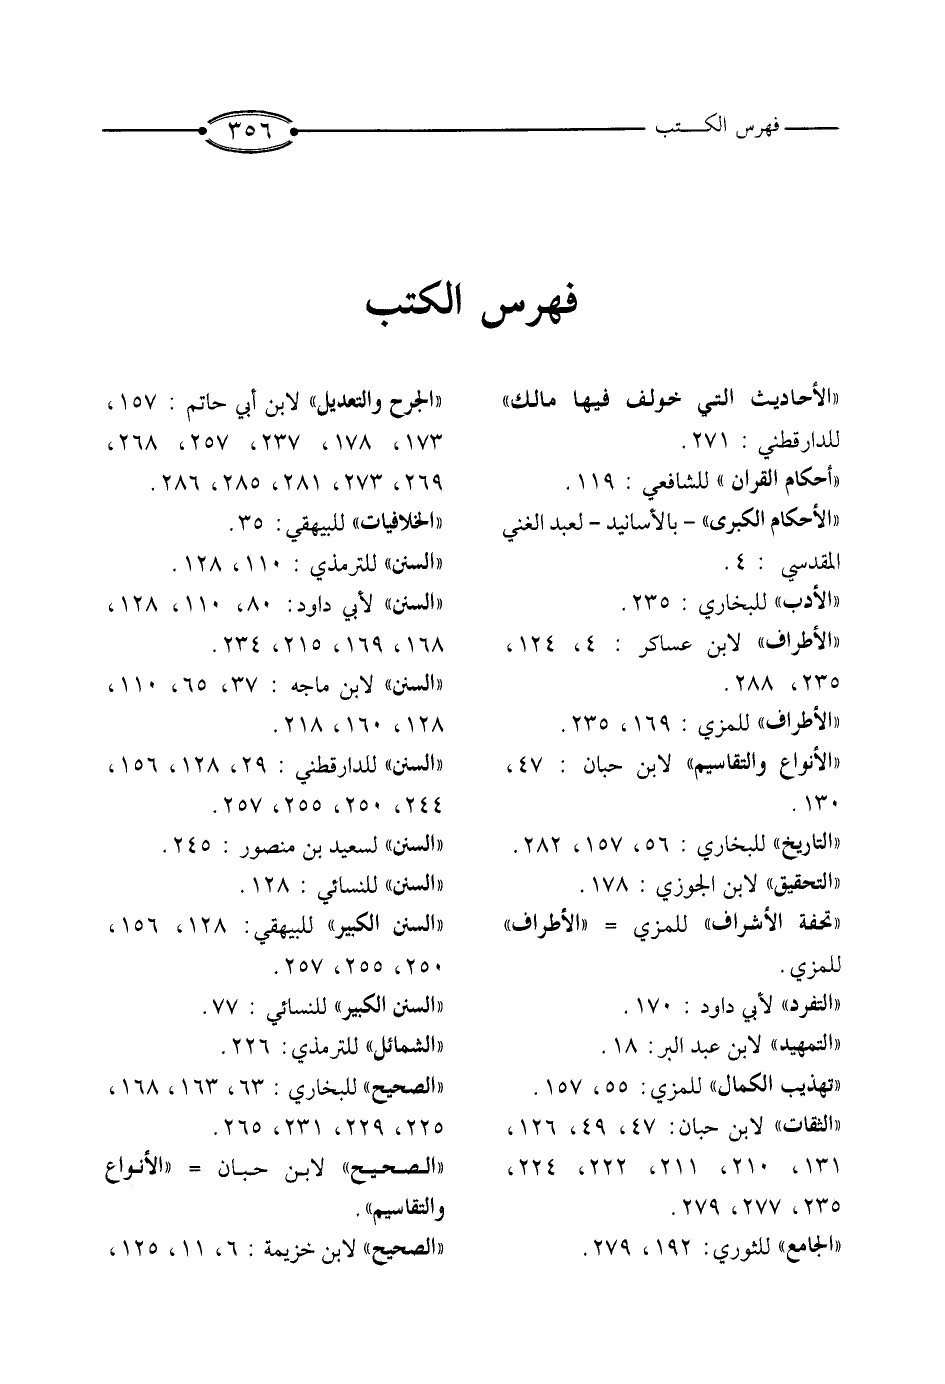 فهرس الكــتب
٣٥٦
فهرس الكتب
«الأحاديث التي خولف فيها مالك»
للدارقطني : ٢٧١ .
«أحكام القران » للشافعي : ١١٩ .
«الأحكام الكبرى» – بالأسانيد – لعبد الغني
المقدسي : ٤ .
«الأدب» للبخاري : ٢٣٥ .
«الأطراف» لابن عساكر : ٤ ، ١٢٤ ،
٢٣٥ ، ٢٨٨ .
«الأطراف» للمزي : ١٦٩ ، ٢٣٥ .
«الأنواع والتقاسيم» لابن حبان : ٤٧ ،
١٣٠ .
«التاريخ» للبخاري : ٥٦ ، ١٥٧ ، ٢٨٢ .
«التحقيق» لابن الجوزي : ١٧٨ .
«تحفة الأشراف» للمزي = «الأطراف»
للمزي .
«التفرد» لأبي داود : ١٧٠ .
«التمهيد» لابن عبد البر : ١٨ .
«تهذيب الكمال» للمزي : ٥٥ ، ١٥٧ .
«الثقات» لابن حبان : ٤٧ ، ٤٩ ، ١٢٦ ،
١٣١ ، ٢١٠ ، ٢١١ ، ٢٢٢ ، ٢٢٤ ،
٢٣٥ ، ٢٧٧ ، ٢٧٩ .
«الجامع» للثوري : ١٩٢ ، ٢٧٩ .
«الجرح والتعديل» لابن أبي حاتم : ١٥٧ ،
١٧٣ ، ١٧٨ ، ٢٣٧ ، ٢٥٧ ، ٢٦٨ ،
٢٦٩ ، ٢٧٣ ، ٢٨١ ، ٢٨٥ ، ٢٨٦ .
«الخلافيات» للبيهقي : ٣٥ .
«السنن» للترمذي : ١١٠ ، ١٢٨ .
«السنن» لأبي داود : ٨٠ ، ١١٠ ، ١٢٨ ،
١٦٨ ، ١٦٩ ، ٢١٥ ، ٢٣٤ .
«السنن» لابن ماجه : ٣٧ ، ٦٥ ، ١١٠ ،
١٢٨ ، ١٦٠ ، ٢١٨ .
«السنن» للدارقطني : ٢٩ ، ١٢٨ ، ١٥٦ ،
٢٤٤ ، ٢٥٠ ، ٢٥٥ ، ٢٥٧ .
«السنن» لسعيد بن منصور : ٢٤٥ .
«السنن» للنسائي : ١٢٨ .
«السنن الكبير» للبيهقي : ١٢٨ ، ١٥٦ ،
٢٥٠ ، ٢٥٥ ، ٢٥٧ .
«السنن الكبير» للنسائي : ٧٧ .
«الشمائل» للترمذي : ٢٢٦ .
«الصحيح» للبخاري : ٦٣ ، ١٦٣ ، ١٦٨ ،
٢٢٥ ، ٢٢٩ ، ٢٣١ ، ٢٦٥ .
«الصحيح» لابن حبان = «الأنواع
والتقاسيم» .
«الصحيح» لابن خزيمة : ٦ ، ١١ ، ١٢٥ ،